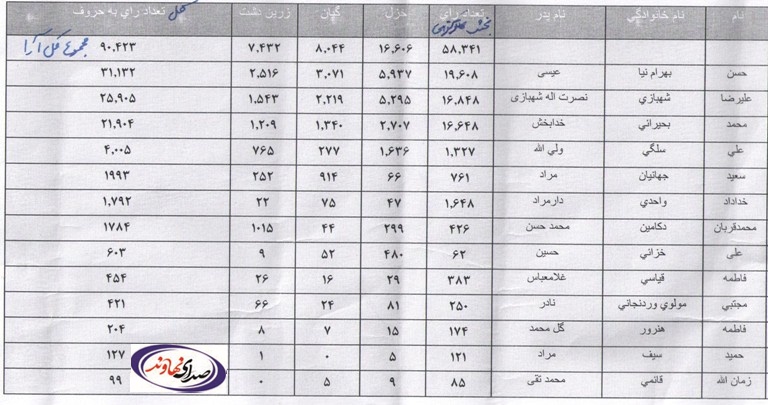 نام نام خانوادگي نام پدر تعداد راي بخش مرکزی خزل گيان زرين دشت کل تعداد راي به حروف
۵۸.۳۴۱ ۱۶.۶۰۶ ۸.۰۴۴ ۷.۴۳۲ ۹۰.۴۲۳ مجموع کل آرا
حسن بهرام نيا عيسی ۱۹.۶۰۸ ۵.۹۳۷ ۳.۰۷۱ ۲.۵۱۶ ۳۱.۱۳۲
عليرضا شهبازي نصرت اله شهبازی ۱۶.۸۴۸ ۵.۲۹۵ ۲.۲۱۹ ۱.۵۴۳ ۲۵.۹۰۵
محمد بحيرائي خدابخش ۱۶.۶۴۸ ۲.۷۰۷ ۱.۳۴۰ ۱.۲۰۹ ۲۱.۹۰۴
علي سلگي ولي الله ۱.۳۲۷ ۱.۶۳۶ ۲۷۷ ۷۶۵ ۴.۰۰۵
سعيد جهانيان مراد ۷۶۱ ۶۶ ۹۱۴ ۲۵۲ ۱۹۹۳
خداداد واحدي دارمراد ۱.۶۴۸ ۴۷ ۷۵ ۲۲ ۱.۷۹۲
محمدقربان دکامين محمد حسن ۴۲۶ ۲۹۹ ۴۴ ۱۰۱۵ ۱۷۸۴
علی خزائي حسين ۶۲ ۴۸۰ ۵۲ ۹ ۶۰۳
فاطمه قياسي غلامعباس ۳۸۳ ۲۹ ۱۶ ۲۶ ۴۵۴
مجتبي مولوي وردنجاني نادر ۲۵۰ ۸۱ ۲۴ ۶۶ ۴۲۱
فاطمه هنرور گل محمد ۱۷۴ ۱۵ ۷ ۸ ۲۰۴
حميد سيف مراد ۱۲۱ ۵ ۰ ۱ ۱۲۷
زمان الله قائمي محمد تقی ۸۵ ۹ ۵ ۰ ۹۹
صدای نهاوند